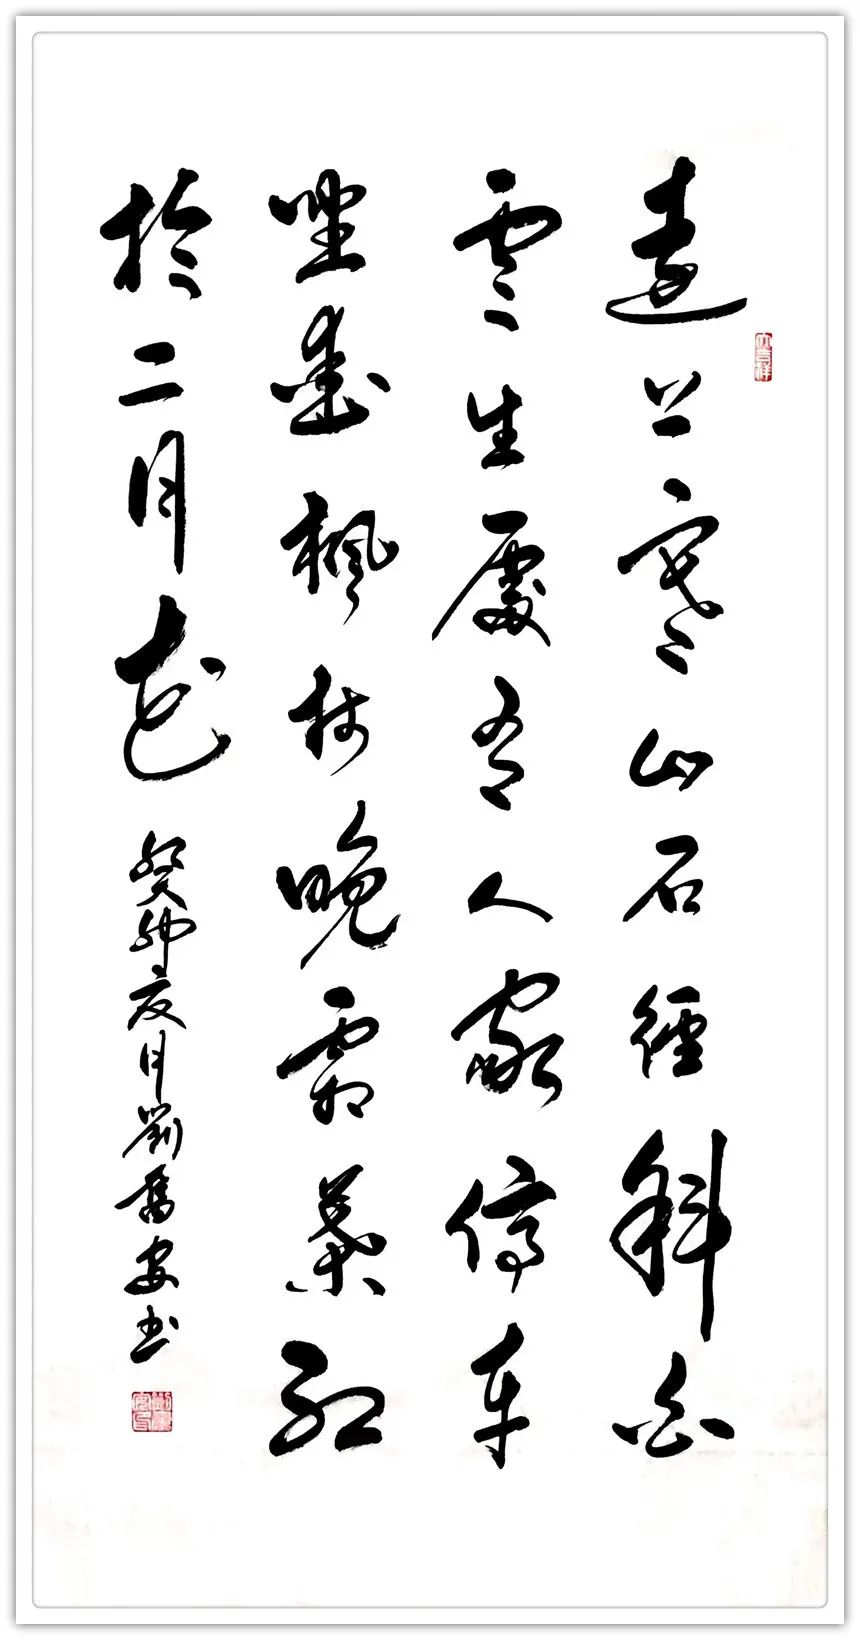 遠上寒山石徑斜白
雲生處有人家停車
坐愛楓林晚霜葉紅
於二月花
癸卯夏月劉安書
大吉祥